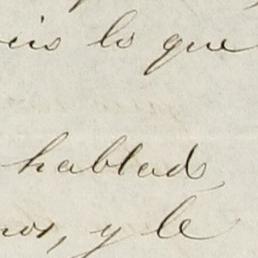 eis lo que
hablado
nos, y le